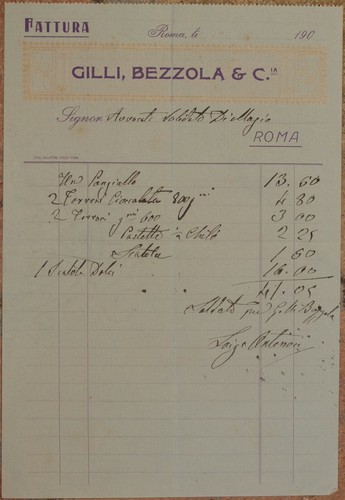 FATTURA
Roma, li 190
GILLI, BEZZOLA & C.IA
Signor Avvocati Di Maggio
ROMA
Un Pangiallo 13.60
2 Torroni Cioccolata 800 gmi 4 80
2 Torroni gmi 600 3 00
Pastette ½ Chilo 2 25
Scatola 1 60
1 Scatola Dolci 16.00
41.05
Saldato per Gilli Bezzola
Luigi Antenori